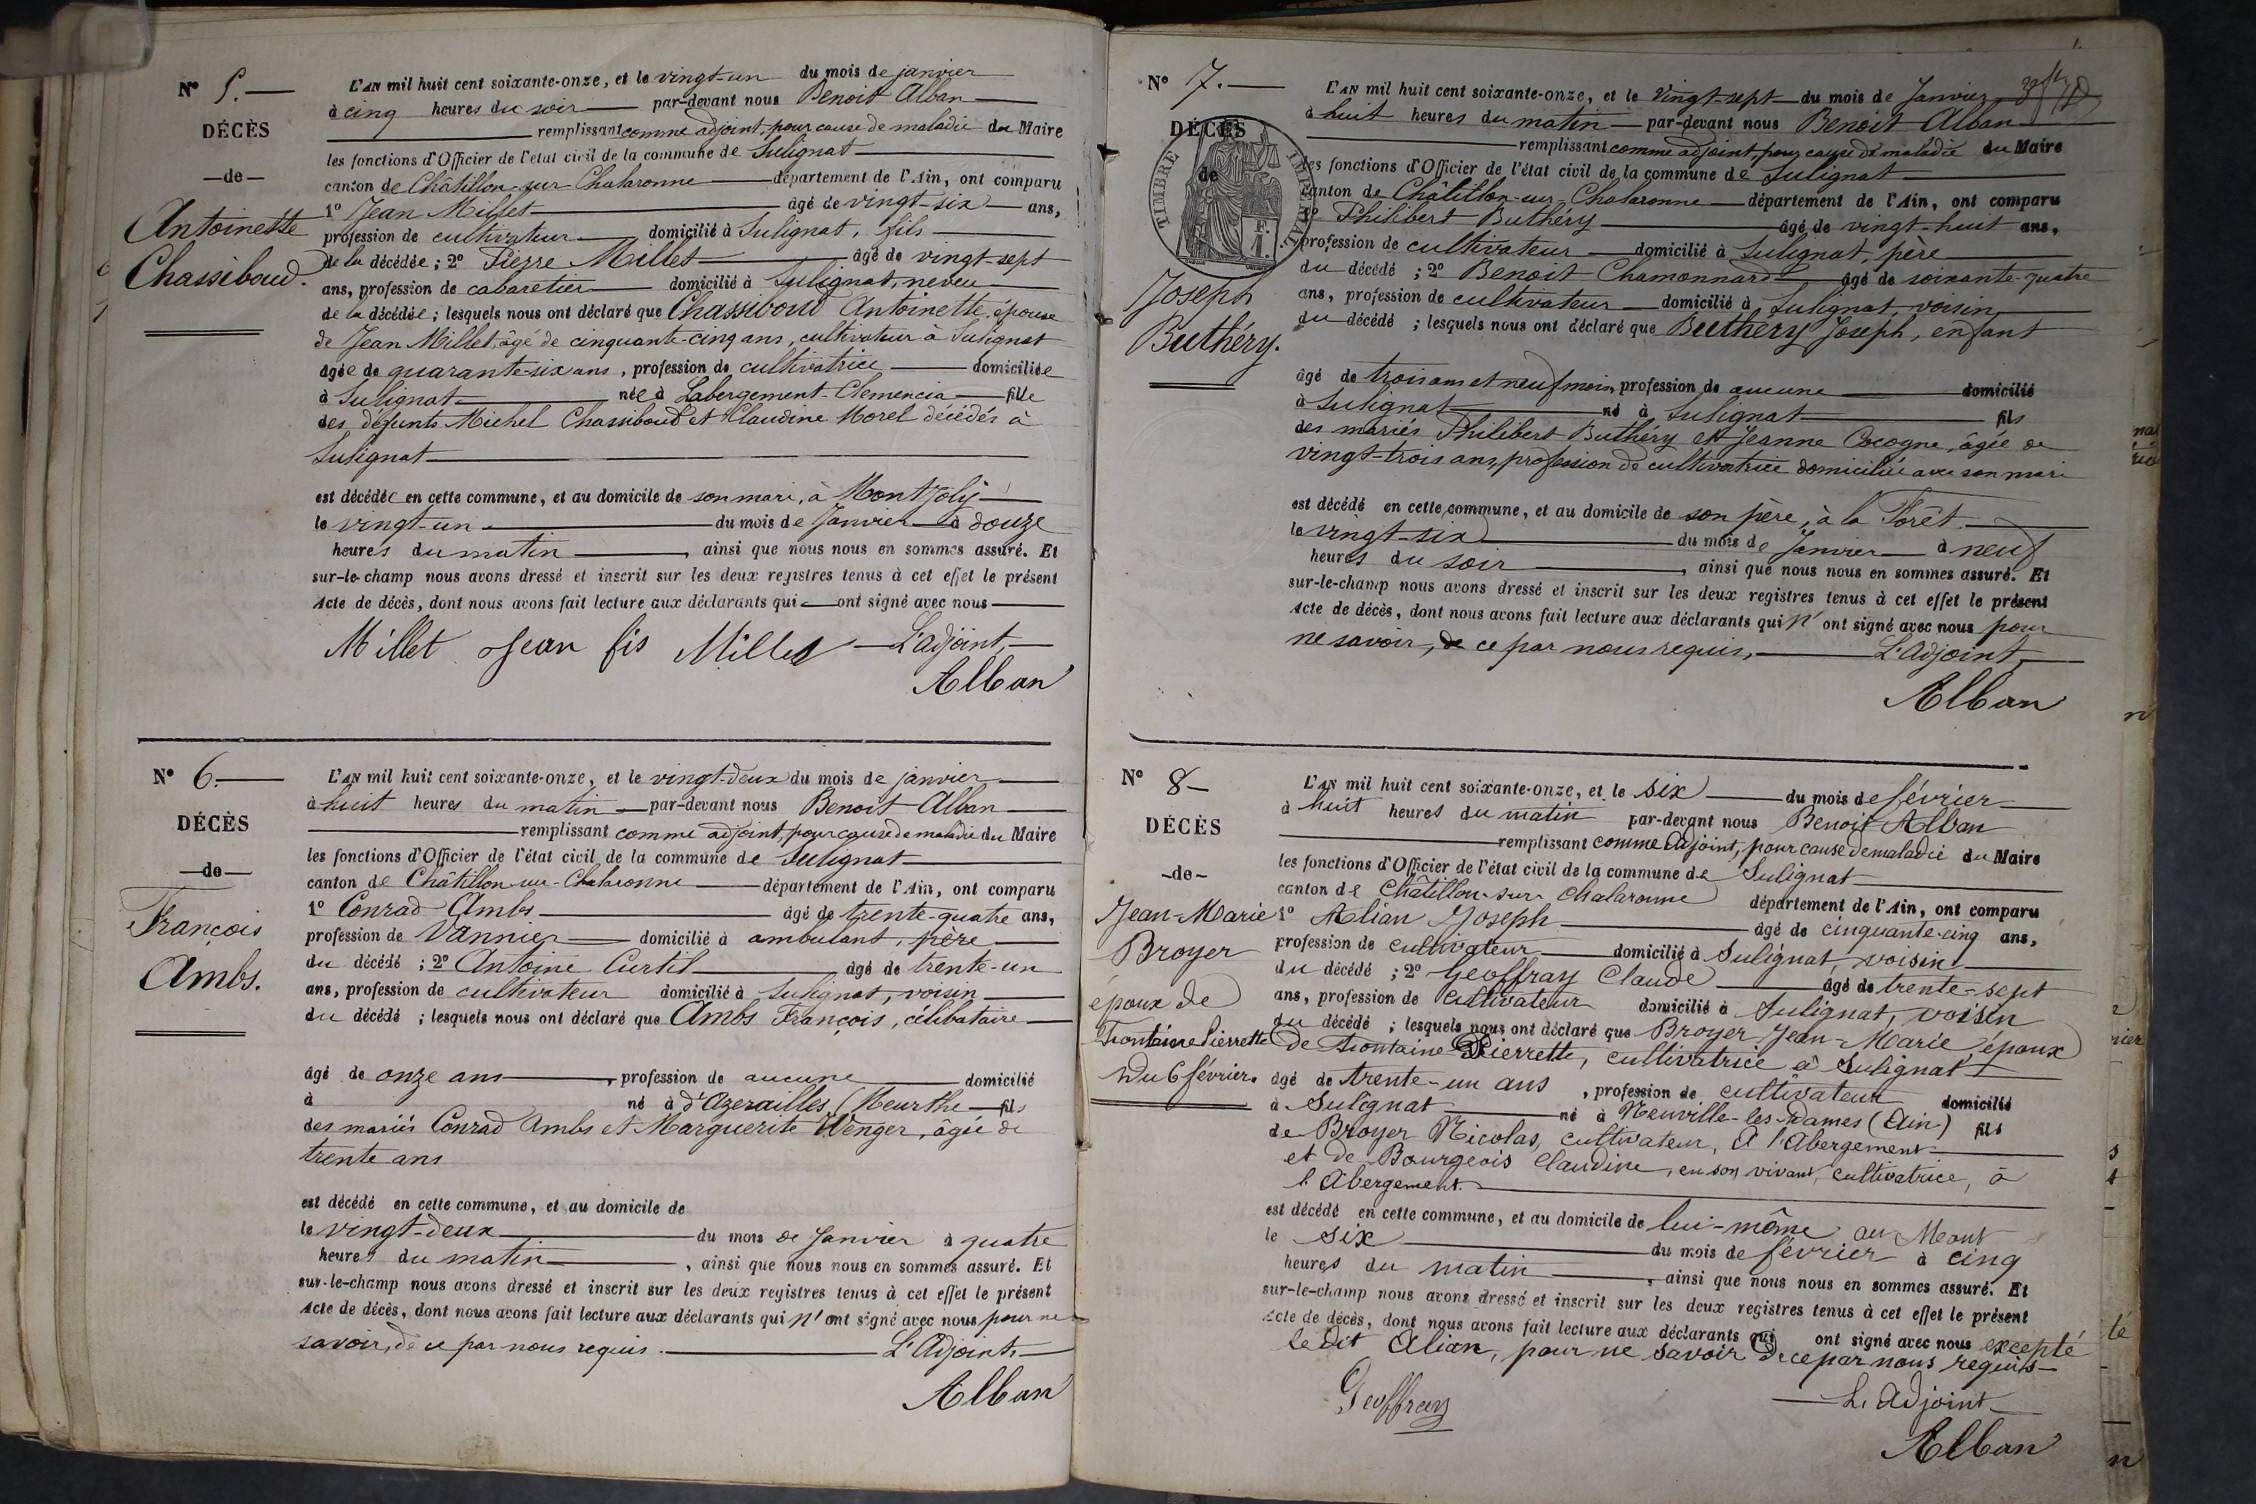 N° 5.
DÉCÈS
—de—
Antoinette
Chassiboud.
L'AN mil huit cent soixante-onze, et le vingt-un du mois de janvier
à cinq heures du soir par-devant nous Benoit Alban
remplissant comme adjoint, pour cause de maladie du Maire
les fonctions d'Officier de l'état civil de la commune de Sulignat
canton de Châtillon-sur-Chalaronne département de l'Ain, ont comparu
1° Jean Millet âgé de vingt-six ans,
profession de cultivateur domicilié à Sulignat, fils
de la décédée; 2° Pierre Millet âgé de vingt-sept
ans, profession de cabaretier domicilié à Sulignat, neveu
de la décédée; lesquels nous ont déclaré que Chassiboud Antoinette, épouse
de Jean Millet, âgé de cinquante-cinq ans, cultivateur à Sulignat
âgée de quarante-six ans, profession de cultivatrice domiciliée
à Sulignat née à Labergement-Clemencia fille
des défunts Michel Chassiboud et Claudine Morel décédés à
Sulignat
est décédée en cette commune, et au domicile de son mari, à Montjoly
le vingt-un du mois de Janvier à douze
heures du matin, ainsi que nous nous en sommes assuré. Et
sur-le-champ nous avons dressé et inscrit sur les deux registres tenus à cet effet le présent
Acte de décès, dont nous avons fait lecture aux déclarants qui — ont signé avec nous
Millet Jean fis Millet L'adjoint,
Alban
N° 6.
DÉCÈS
—de—
François
Ambs.
L'AN mil huit cent soixante-onze, et le vingt-deux du mois de janvier
à huit heures du matin par-devant nous Benoit Alban
remplissant comme adjoint, pour cause de maladie du Maire
les fonctions d'Officier de l'état civil de la commune de Sulignat
canton de Châtillon-sur-Chalaronne département de l'Ain, ont comparu
1° Conrad Ambs âgé de trente-quatre ans,
profession de Vannier domicilié à ambulant, père
du décédé; 2° Antoine Curtil âgé de trente-un
ans, profession de cultivateur domicilié à Sulignat, voisin
du décédé; lesquels nous ont déclaré que Ambs François, célibataire
âgé de onze ans, profession de aucune domicilié
à né à d'Azerailles (Meurthe fils
des mariés Conrad Ambs et Marguerite Wenger, âgée de
trente ans
est décédé en cette commune, et au domicile de
le vingt-deux du mois de Janvier à quatre
heures du matin, ainsi que nous nous en sommes assuré. Et
sur-le-champ nous avons dressé et inscrit sur les deux registres tenus à cet effet le présent
Acte de décès, dont nous avons fait lecture aux déclarants qui n'ont signé avec nous pour ne
savoir, de ce par nous requis. L'Adjoint,
Alban
N° 7.
DÉCÈS
de
TIMBRE IMPÉRIAL
Joseph
Buthéry.
L'AN mil huit cent soixante-onze, et le Vingt-sept du mois de Janvier
à huit heures du matin par-devant nous Benoit Alban
remplissant comme adjoint, pour cause de maladie du Maire
les fonctions d'Officier de l'état civil de la commune de Sulignat
canton de Châtillon-sur-Chalaronne département de l'Ain, ont comparu
1° Philibert Buthéry âgé de vingt-huit ans,
profession de cultivateur domicilié à Sulignat, père
du décédé; 2° Benoit Chamonnard âgé de soixante-quatre
ans, profession de cultivateur domicilié à Sulignat, voisin
du décédé; lesquels nous ont déclaré que Buthéry Joseph, enfant
âgé de trois ans et neuf mois, profession de aucune domicilié
à Sulignat né à Sulignat fils
des mariés Philibert Buthéry et Jeanne Cocogne, âgée de
vingt-trois ans, profession de cultivatrice domiciliée avec son mari
est décédé en cette commune, et au domicile de son père, à la Forêt
le vingt-six du mois de Janvier à neuf
heures du soir, ainsi que nous nous en sommes assuré. Et
sur-le-champ nous avons dressé et inscrit sur les deux registres tenus à cet effet le présent
Acte de décès, dont nous avons fait lecture aux déclarants qui n'ont signé avec nous pour
ne savoir, de ce par nous requis, L'Adjoint,
Alban
N° 8
DÉCÈS
—de—
Jean-Marie
Broyer
époux de
Fontaine Pierrette
Du 6 février.
L'AN mil huit cent soixante-onze, et le six du mois de février
à huit heures du matin par-devant nous Benoit Alban
remplissant comme adjoint, pour cause de maladie du Maire
les fonctions d'Officier de l'état civil de la commune de Sulignat
canton de Châtillon-sur-Chalaronne département de l'Ain, ont comparu
1° Alian Joseph âgé de cinquante-cinq ans,
profession de cultivateur domicilié à Sulignat, voisin
du décédé; 2° Geoffray Claude âgé de trente-sept
ans, profession de cultivateur domicilié à Sulignat, voisin
du décédé; lesquels nous ont déclaré que Broyer Jean-Marie, époux
de Fontaine Pierrette, cultivatrice à Sulignat
âgé de trente-un ans, profession de cultivateur domicilié
à Sulignat né à Neuville-les-Dames (Ain) fils
de Broyer Nicolas, cultivateur, à l'Abergement
et de Bourgeois Claudine, en son vivant, cultivatrice, à
l'Abergement.
est décédé en cette commune, et au domicile de lui-même au Mont
le six du mois de février à cinq
heures du matin, ainsi que nous nous en sommes assuré. Et
sur-le-champ nous avons dressé et inscrit sur les deux registres tenus à cet effet le présent
Acte de décès, dont nous avons fait lecture aux déclarants qui ont signé avec nous excepté
le dit Alian, pour ne savoir de ce par nous requis
Geoffray L'Adjoint
Alban